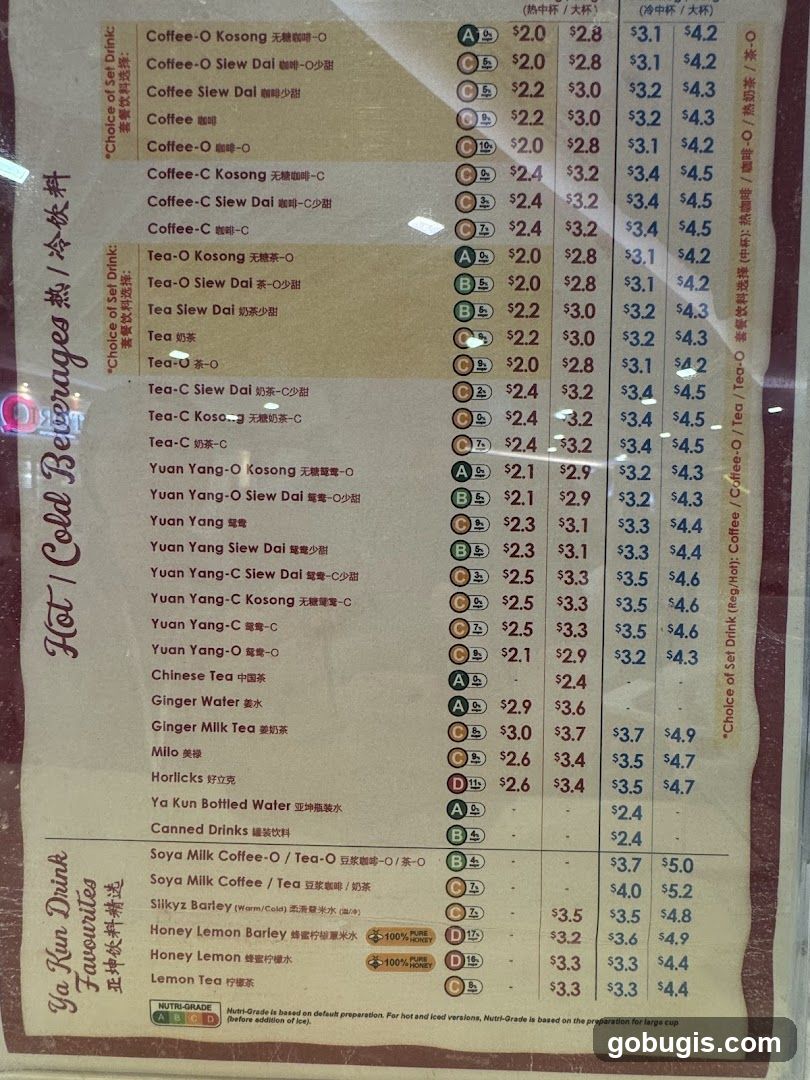 (热中杯 / 大杯) (冷中杯 / 大杯)
*Choice of Set Drink:
套餐饮料选择:
Coffee-O Kosong 无糖咖啡-O A 0% $2.0 $2.8 $3.1 $4.2
Coffee-O Siew Dai 咖啡-O少甜 C 5% $2.0 $2.8 $3.1 $4.2
Coffee Siew Dai 咖啡少甜 C 5% $2.2 $3.0 $3.2 $4.3
Coffee 咖啡 C 9% $2.2 $3.0 $3.2 $4.3
Coffee-O 咖啡-O C 10% $2.0 $2.8 $3.1 $4.2
Hot / Cold Beverages 热 / 冷饮料
Coffee-C Kosong 无糖咖啡-C C 0% $2.4 $3.2 $3.4 $4.5
Coffee-C Siew Dai 咖啡-C少甜 C 3% $2.4 $3.2 $3.4 $4.5
Coffee-C 咖啡-C C 7% $2.4 $3.2 $3.4 $4.5
*Choice of Set Drink:
套餐饮料选择:
Tea-O Kosong 无糖茶-O A 0% $2.0 $2.8 $3.1 $4.2
Tea-O Siew Dai 茶-O少甜 B 5% $2.0 $2.8 $3.1 $4.2
Tea Siew Dai 奶茶少甜 B 5% $2.2 $3.0 $3.2 $4.3
Tea 奶茶 C $2.2 $3.0 $3.2 $4.3
Tea-O 茶-O C 9% $2.0 $2.8 $3.1 $4.2
Tea-C Siew Dai 奶茶-C少甜 C 2% $2.4 $3.2 $3.4 $4.5
Tea-C Kosong 无糖奶茶-C C 0% $2.4 $3.2 $3.4 $4.5
Tea-C 奶茶-C C 7% $2.4 $3.2 $3.4 $4.5
Yuan Yang-O Kosong 无糖鸳鸯-O A 0% $2.1 $2.9 $3.2 $4.3
Yuan Yang-O Siew Dai 鸳鸯-O少甜 B 5% $2.1 $2.9 $3.2 $4.3
Yuan Yang 鸳鸯 C 9% $2.3 $3.1 $3.3 $4.4
Yuan Yang Siew Dai 鸳鸯少甜 B 5% $2.3 $3.1 $3.3 $4.4
Yuan Yang-C Siew Dai 鸳鸯-C少甜 C 3% $2.5 $3.3 $3.5 $4.6
Yuan Yang-C Kosong 无糖鸳鸯-C C 0% $2.5 $3.3 $3.5 $4.6
Yuan Yang-C 鸳鸯-C C 7% $2.5 $3.3 $3.5 $4.6
Yuan Yang-O 鸳鸯-O C 9% $2.1 $2.9 $3.2 $4.3
Chinese Tea 中国茶 A 0% - $2.4 - -
Ginger Water 姜水 A 0% $2.9 $3.6 - -
Ginger Milk Tea 姜奶茶 C 8% $3.0 $3.7 $3.7 $4.9
Milo 美禄 C 9% $2.6 $3.4 $3.5 $4.7
Horlicks 好立克 D 11% $2.6 $3.4 $3.5 $4.7
Ya Kun Bottled Water 亚坤瓶装水 A 0% - - $2.4 -
Canned Drinks 罐装饮料 B 4% - - $2.4 -
*Choice of Set Drink (Reg/Hot): Coffee / Coffee-O / Tea / Tea-O 套餐饮料选择 (中杯): 热咖啡 / 咖啡-O / 热奶茶 / 茶-O
Ya Kun Drink
Favourites
亚坤饮料精选
Soya Milk Coffee-O / Tea-O 豆浆咖啡-O / 茶-O B 4% - - $3.7 $5.0
Soya Milk Coffee / Tea 豆浆咖啡 / 奶茶 C 7% - - $4.0 $5.2
Silkyz Barley (Warm/Cold) 柔滑薏米水 (温/冷) C 7% - $3.5 $3.5 $4.8
Honey Lemon Barley 蜂蜜柠檬薏米水 100% PURE HONEY D 17% - $3.2 $3.6 $4.9
Honey Lemon 蜂蜜柠檬水 100% PURE HONEY D 16% - $3.3 $3.3 $4.4
Lemon Tea 柠檬茶 C 8% - $3.3 $3.3 $4.4
NUTRI-GRADE
A B C D
Nutri-Grade is based on default preparation. For hot and iced versions, Nutri-Grade is based on the preparation for large cup
(before addition of ice).
gobugis.com